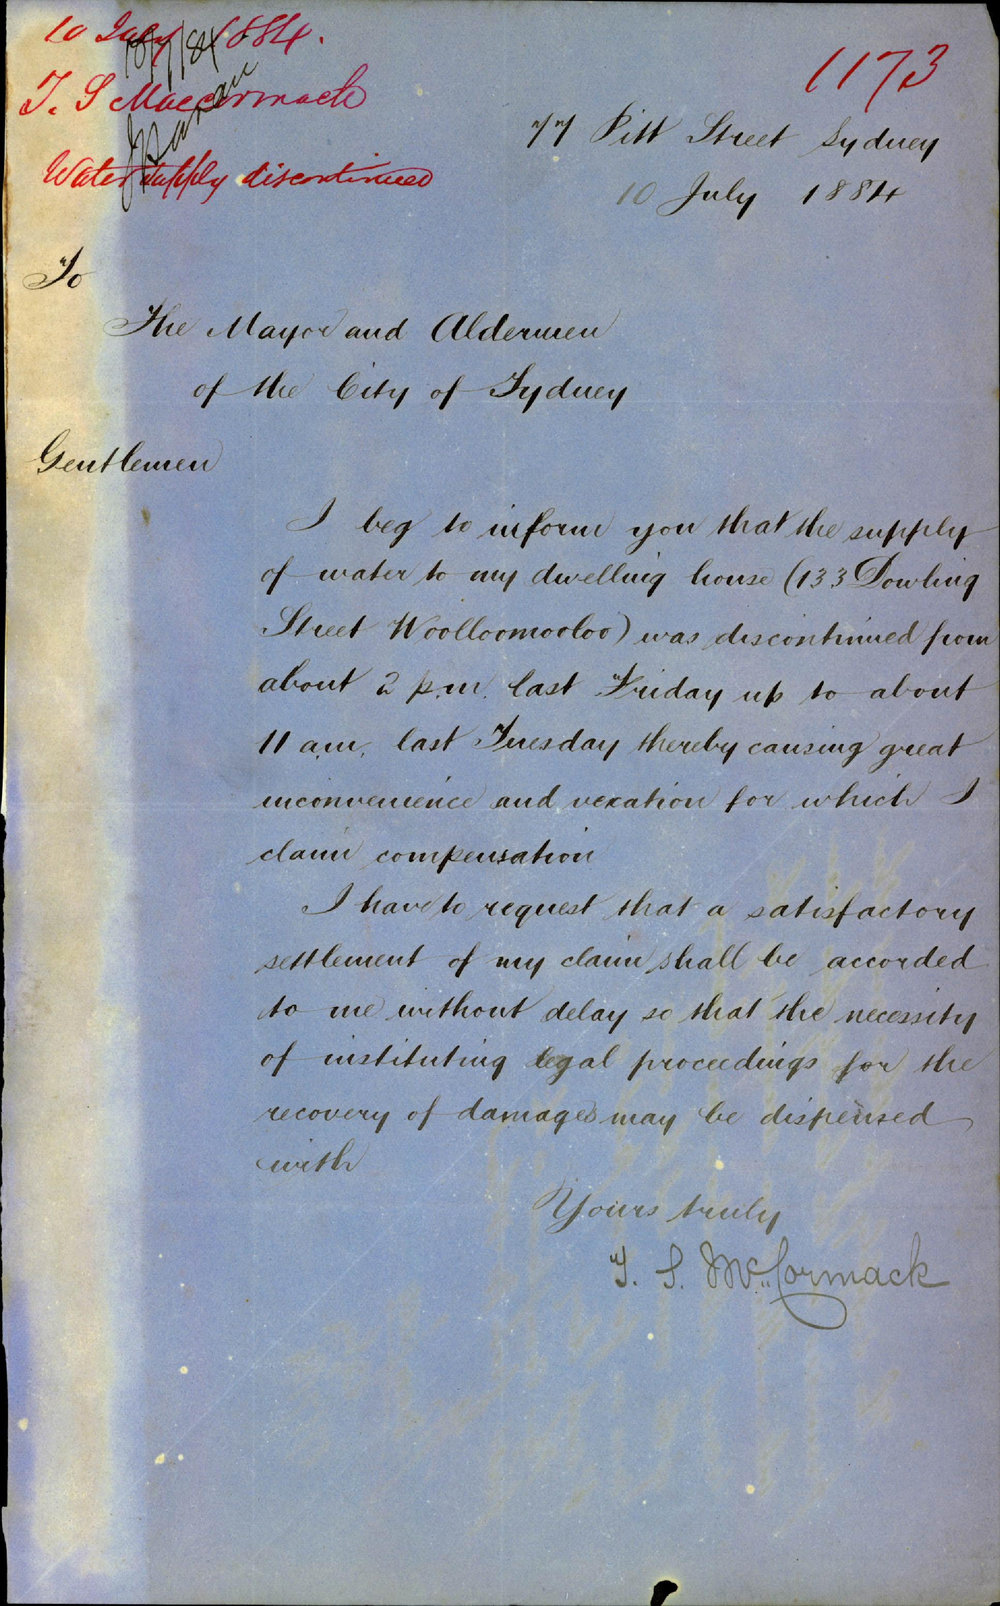 10 July 1884.
T. S Maccormack
Water supply discontinued
18/7/84
1173
77 Pitt Street Sydney
10 July 1884
To
The Mayor and Aldermen
of the City of Sydney
Gentlemen
I beg to inform you that the supply
of water to my dwelling house (133 Dowling
Street Woolloomooloo) was discontinued from
about 2 p.m. last Friday up to about
11 a.m. last Tuesday thereby causing great
inconvenience and vexation for which I
claim compensation
I have to request that a satisfactory
settlement of my claim shall be accorded
to me without delay so that the necessity
of instituting legal proceedings for the
recovery of damages may be dispensed
with
Yours truly
T. S. McCormack